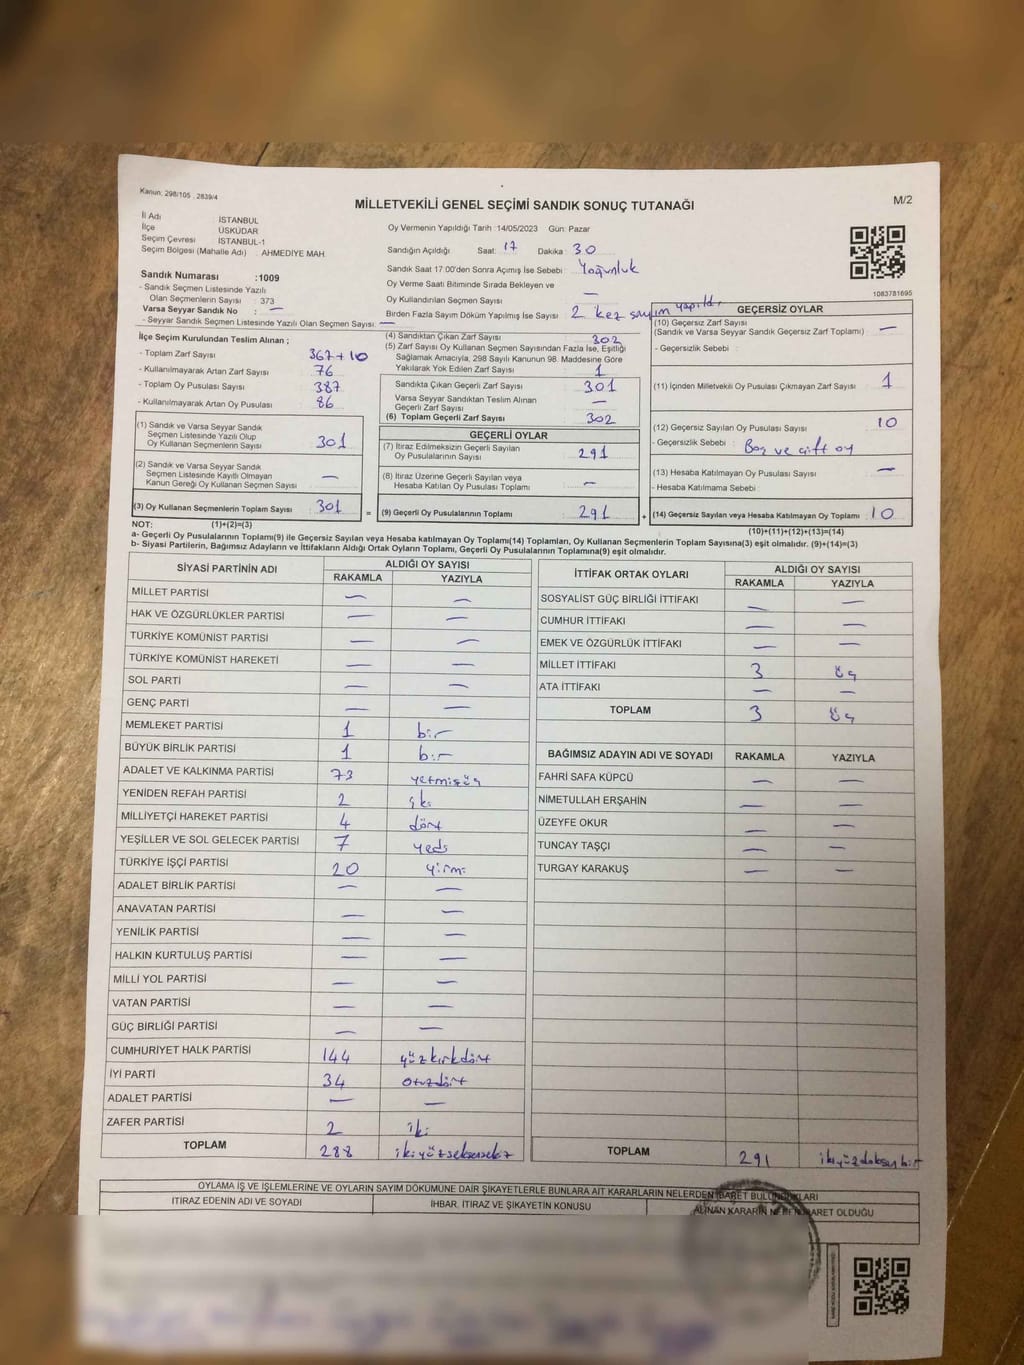 Kanun: 298/105 , 2839/4
M/2
MİLLETVEKİLİ GENEL SEÇİMİ SANDIK SONUÇ TUTANAĞI
İl Adı İSTANBUL
İlçe ÜSKÜDAR
Seçim Çevresi İSTANBUL-1
Seçim Bölgesi (Mahalle Adı) : AHMEDİYE MAH.
Sandık Numarası :1009
- Sandık Seçmen Listesinde Yazılı
Olan Seçmenlerin Sayısı : 373
Varsa Seyyar Sandık No : —
- Seyyar Sandık Seçmen Listesinde Yazılı Olan Seçmen Sayısı: —
Oy Vermenin Yapıldığı Tarih :14/05/2023 Gün: Pazar
Sandığın Açıldığı Saat: 17 Dakika : 30
Sandık Saat 17:00'den Sonra Açımış İse Sebebi : Yoğunluk
Oy Verme Saati Bitiminde Sırada Bekleyen ve
Oy Kullandırılan Seçmen Sayısı : —
Birden Fazla Sayım Döküm Yapılmış İse Sayısı : 2 kez sayım yapıldı
1083781695
İlçe Seçim Kurulundan Teslim Alınan ;
- Toplam Zarf Sayısı : 367+10
- Kullanılmayarak Artan Zarf Sayısı : 76
- Toplam Oy Pusulası Sayısı : 387
- Kullanılmayarak Artan Oy Pusulası : 86
(1) Sandık ve Varsa Seyyar Sandık
Seçmen Listesinde Yazılı Olup
Oy Kullanan Seçmenlerin Sayısı : 301
(2) Sandık ve Varsa Seyyar Sandık
Seçmen Listesinde Kayıtlı Olmayan
Kanun Gereği Oy Kullanan Seçmen Sayısı : —
(3) Oy Kullanan Seçmenlerin Toplam Sayısı : 301
(1)+(2)=(3)
(4) Sandıktan Çıkan Zarf Sayısı : 302
(5) Zarf Sayısı Oy Kullanan Seçmen Sayısından Fazla İse, Eşitliği
Sağlamak Amacıyla, 298 Sayılı Kanunun 98. Maddesine Göre
Yakılarak Yok Edilen Zarf Sayısı : 1
Sandıkta Çıkan Geçerli Zarf Sayısı : 301
Varsa Seyyar Sandıktan Teslim Alınan
Geçerli Zarf Sayısı : —
(6) Toplam Geçerli Zarf Sayısı : 302
GEÇERLİ OYLAR
(7) İtiraz Edilmeksizin Geçerli Sayılan
Oy Pusulalarının Sayısı : 291
(8) İtiraz Üzerine Geçerli Sayılan veya
Hesaba Katılan Oy Pusulası Toplamı : —
= (9) Geçerli Oy Pusulalarının Toplamı : 291 +
GEÇERSİZ OYLAR
(10) Geçersiz Zarf Sayısı
(Sandık ve Varsa Seyyar Sandık Geçersiz Zarf Toplamı) : —
- Geçersizlik Sebebi :
(11) İçinden Milletvekili Oy Pusulası Çıkmayan Zarf Sayısı : 1
(12) Geçersiz Sayılan Oy Pusulası Sayısı : 10
- Geçersizlik Sebebi : Boş ve çift oy
(13) Hesaba Katılmayan Oy Pusulası Sayısı : —
- Hesaba Katılmama Sebebi :
(14) Geçersiz Sayılan veya Hesaba Katılmayan Oy Toplamı : 10
(10)+(11)+(12)+(13)=(14)
NOT:
a- Geçerli Oy Pusulalarının Toplamı(9) ile Geçersiz Sayılan veya Hesaba katılmayan Oy Toplamı(14) Toplamları, Oy Kullanan Seçmenlerin Toplam Sayısına(3) eşit olmalıdır. (9)+(14)=(3)
b- Siyasi Partilerin, Bağımsız Adayların ve İttifakların Aldığı Ortak Oyların Toplamı, Geçerli Oy Pusulalarının Toplamına(9) eşit olmalıdır.
SİYASİ PARTİNİN ADI ALDIĞI OY SAYISI
RAKAMLA YAZIYLA
MİLLET PARTİSİ — —
HAK VE ÖZGÜRLÜKLER PARTİSİ — —
TÜRKİYE KOMÜNİST PARTİSİ — —
TÜRKİYE KOMÜNİST HAREKETİ — —
SOL PARTİ — —
GENÇ PARTİ — —
MEMLEKET PARTİSİ 1 bir
BÜYÜK BİRLİK PARTİSİ 1 bir
ADALET VE KALKINMA PARTİSİ 73 yetmişüç
YENİDEN REFAH PARTİSİ 2 iki
MİLLİYETÇİ HAREKET PARTİSİ 4 dört
YEŞİLLER VE SOL GELECEK PARTİSİ 7 yedi
TÜRKİYE İŞÇİ PARTİSİ 20 yirmi
ADALET BİRLİK PARTİSİ — —
ANAVATAN PARTİSİ — —
YENİLİK PARTİSİ — —
HALKIN KURTULUŞ PARTİSİ — —
MİLLİ YOL PARTİSİ — —
VATAN PARTİSİ — —
GÜÇ BİRLİĞİ PARTİSİ — —
CUMHURİYET HALK PARTİSİ 144 yüzkırkdört
İYİ PARTİ 34 otuzdört
ADALET PARTİSİ — —
ZAFER PARTİSİ 2 iki
TOPLAM 288 ikiyüzseksensekiz
İTTİFAK ORTAK OYLARI ALDIĞI OY SAYISI
RAKAMLA YAZIYLA
SOSYALİST GÜÇ BİRLİĞİ İTTİFAKI — —
CUMHUR İTTİFAKI — —
EMEK VE ÖZGÜRLÜK İTTİFAKI — —
MİLLET İTTİFAKI 3 üç
ATA İTTİFAKI — —
TOPLAM 3 üç
BAĞIMSIZ ADAYIN ADI VE SOYADI RAKAMLA YAZIYLA
FAHRİ SAFA KÜPCÜ — —
NİMETULLAH ERŞAHİN — —
ÜZEYFE OKUR — —
TUNCAY TAŞÇI — —
TURGAY KARAKUŞ — —
TOPLAM 291 ikiyüzdoksanbir
OYLAMA İŞ VE İŞLEMLERİNE VE OYLARIN SAYIM DÖKÜMÜNE DAİR ŞİKAYETLERLE BUNLARA AİT KARARLARIN NELERDEN İBARET BULUNDUKLARI
İTİRAZ EDENİN ADI VE SOYADI İHBAR, İTİRAZ VE ŞİKAYETİN KONUSU ALINAN KARARIN NEDEN İBARET OLDUĞU